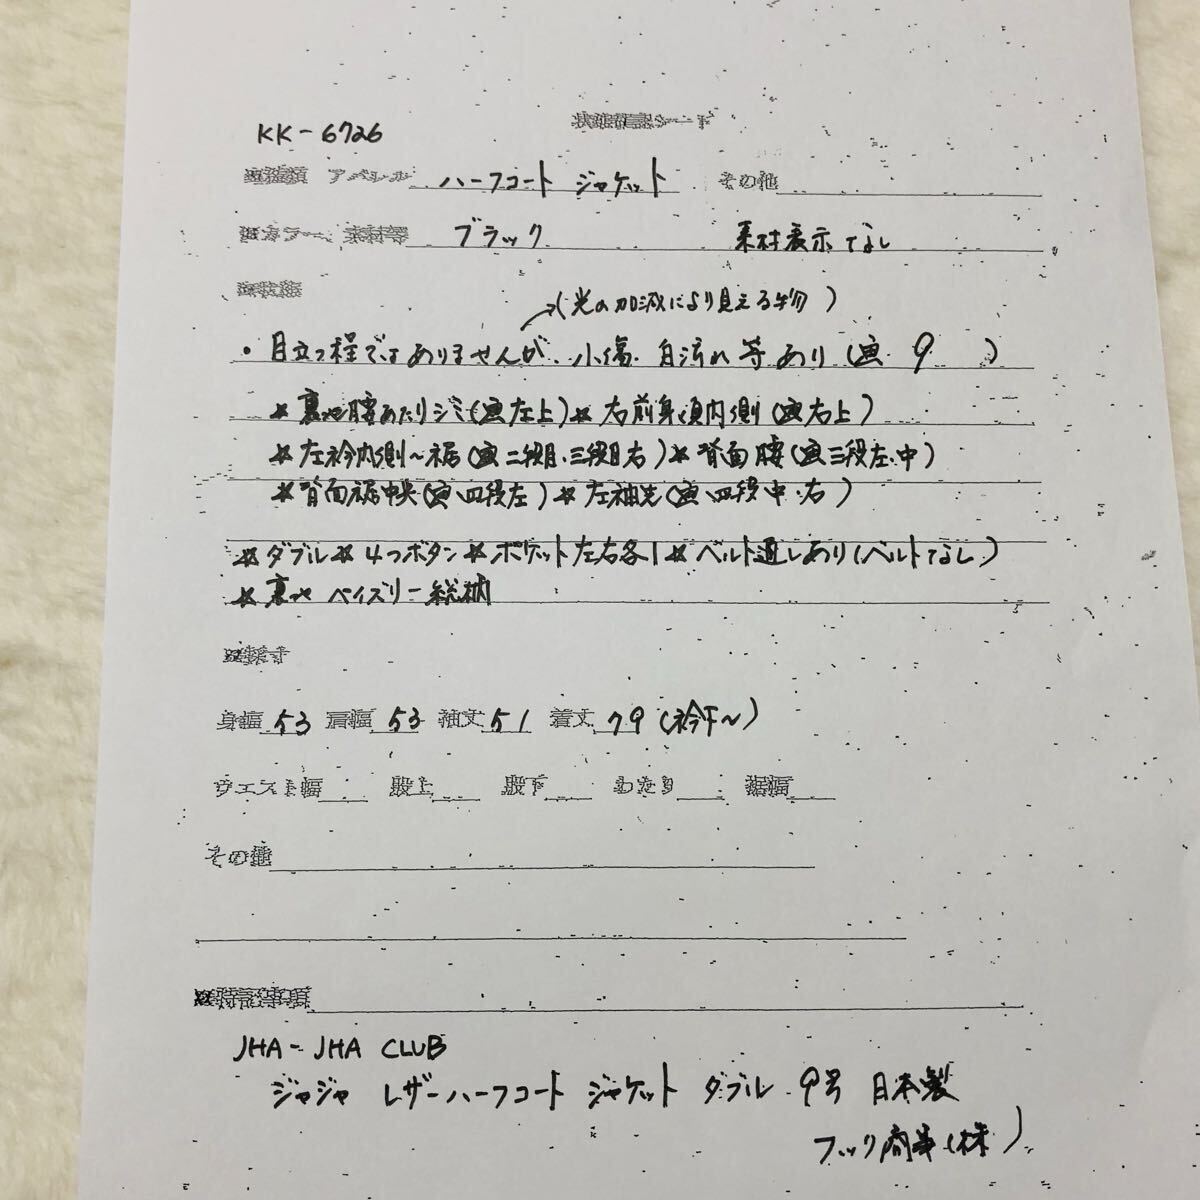 KK-6726
状態確認シート
種類 アパレル ハーフコート ジャケット その他
カラー、素材等 ブラック 素材表示なし
状態
(光の加減により見える物)
・目立つ程ではありませんが、小傷、白流れ等あり(画 9 )
*裏地腰あたりシミ(画左上)*右前身頃内側(画右上)
*左衿内側~裾(画二段目、三段目右)*背面腰(画三段左、中)
*背面裾中央(画四段左)*左袖先(画四段中、右)
*ダブル*4つボタン*ポケット左右各1*ベルト通しあり(ベルトなし)
*裏地 ペイズリー総柄
採寸
身幅 53 肩幅 53 袖丈 51 着丈 79(衿下~)
ウエスト幅 股上 股下 わたり 裾幅
その他
特記事項
JHA-JHA CLUB
ジャジャ レザーハーフコート ジャケット ダブル 9号 日本製
フック商事(株)